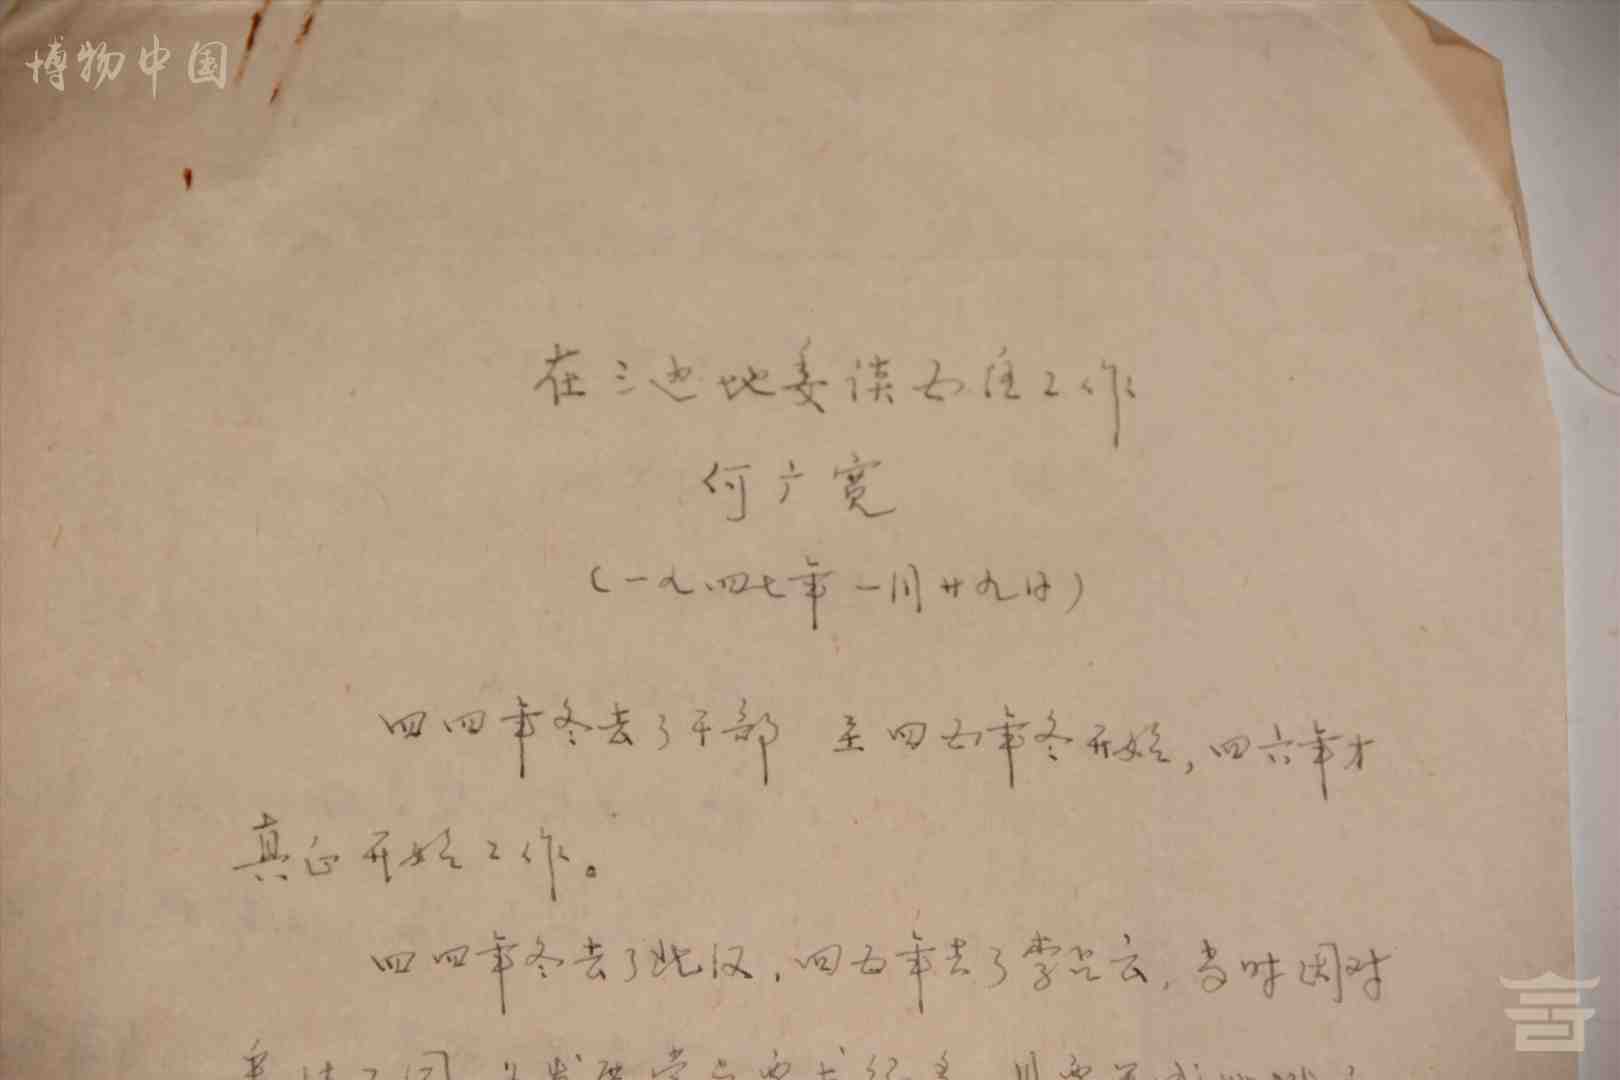 博物中国
在三边地委谈五庄工作
何广宽
(一九四七年一月廿九日)
四四年冬去了干部 至四五年冬开始,四六年才
真正开始工作。
四四年冬去了 四五年去了李 云,当时因对